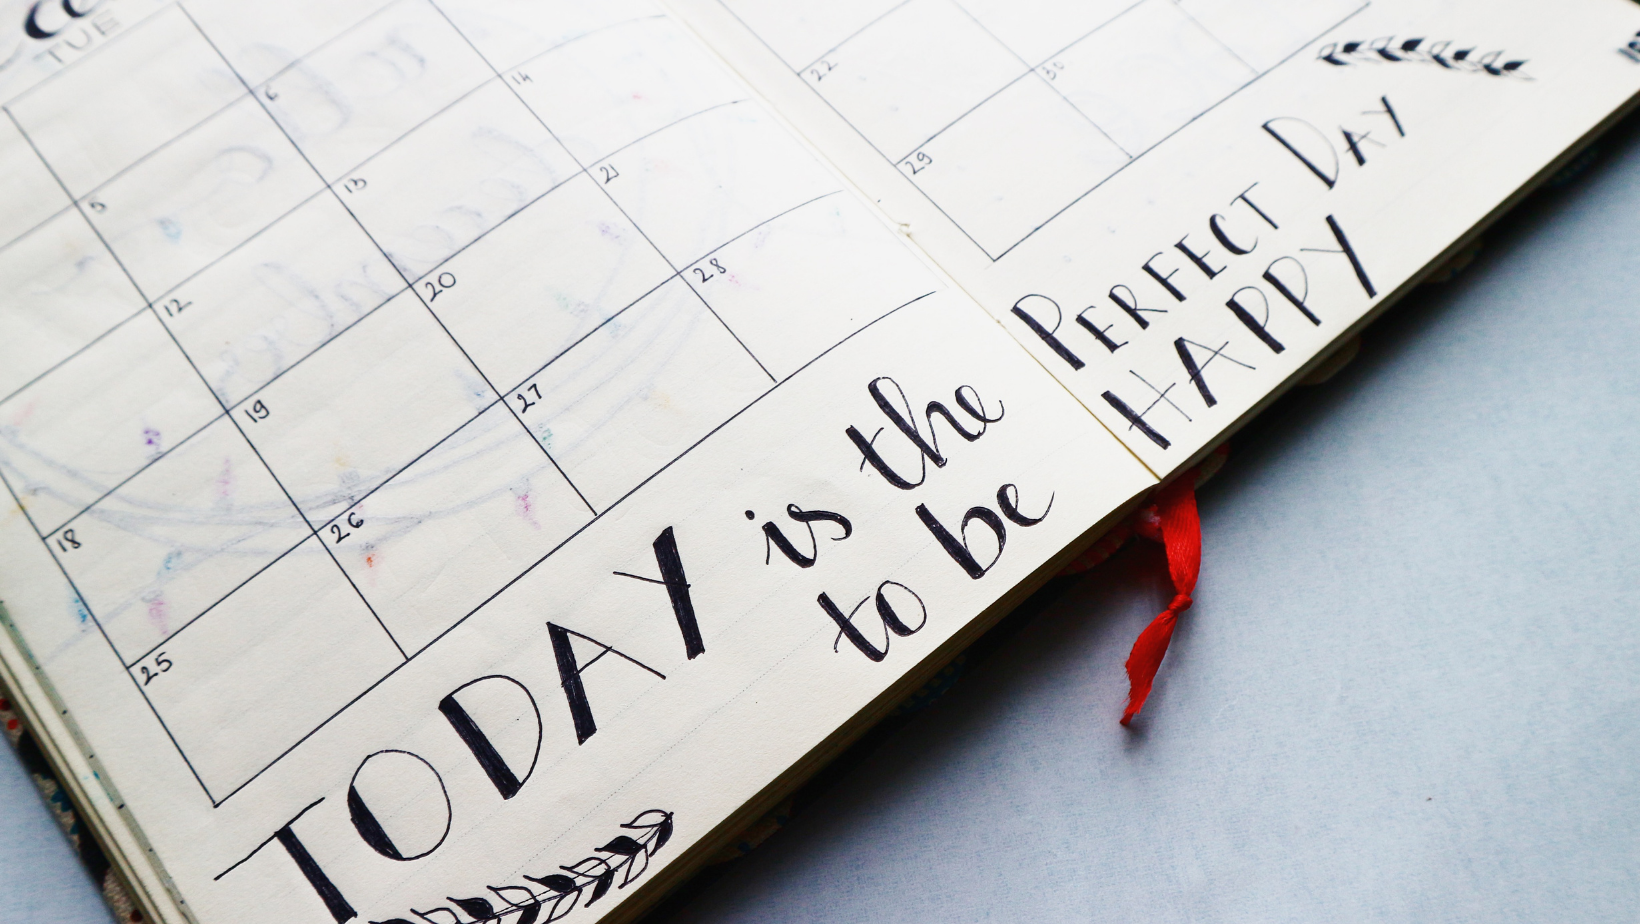 TUE
6 14
5 13 21
12 20 28
19 27
18 26
25
22 30
29
TODAY is the PERFECT DAY
to be HAPPY